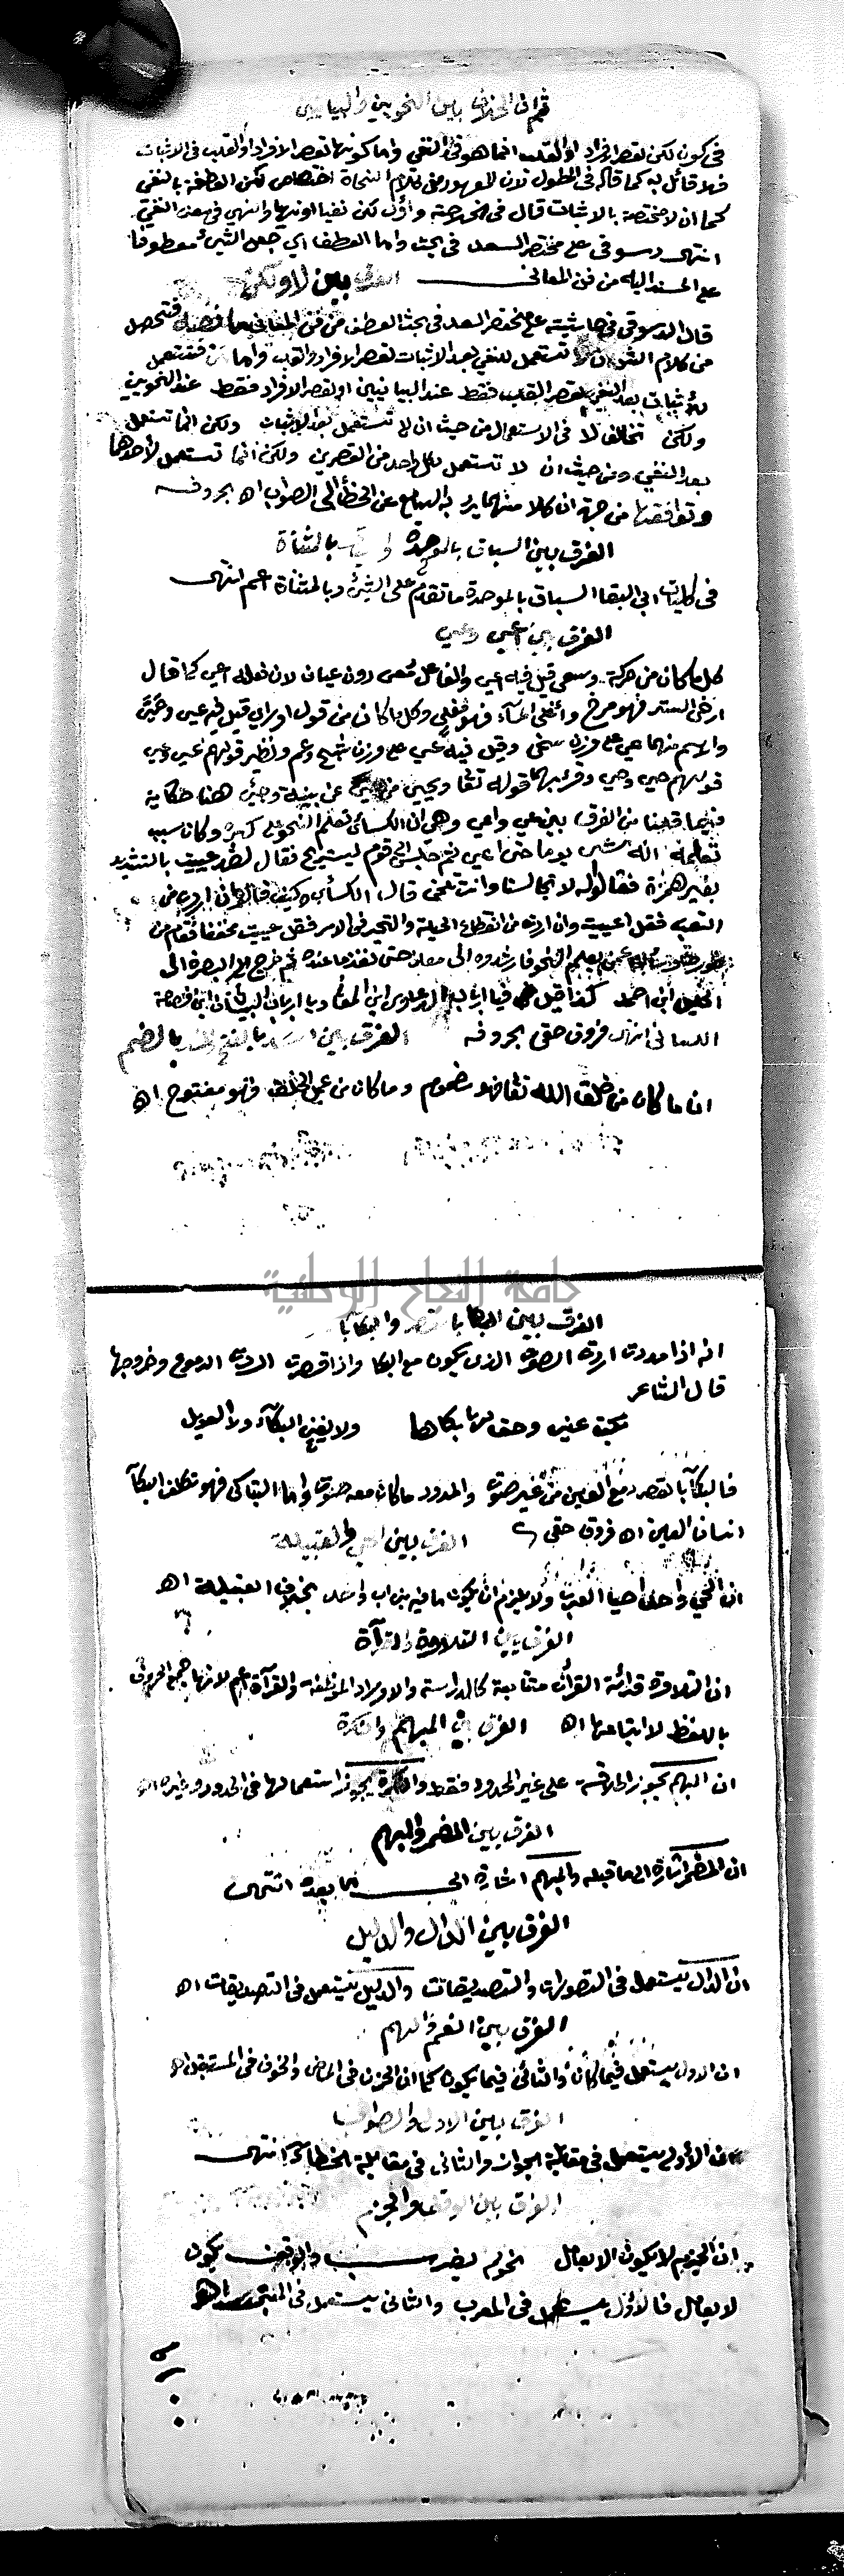 ثم ان الخلاف بين النحويين والبيانيين
في كون لكن لقصر الافراد او القلب انما هو في النفي واما كونها لقصر الافراد او القلب في الاثبات
فلا قائل به كما قاله في المطول لان المفهوم من كلام النحاة اختصاص لكن العاطفة بالنفي
كما ان لا مختصة بالاثبات قال في وأول لكن نفيا او نهيا والنهي في معنى النفي
انتهى دسوقي على مختصر السعد في بحث واما العطف اي جعل الشيء معطوفا
على المسند اليه من فن المعاني الفرق بين لا ولكن
قال الدسوقي في حاشيته على مختصر السعد في بحث العطف من فن المعاني ما نصه فتحصل
من كلام الشارح ان لا تستعمل للنفي بعد الاثبات لقصر الافراد والقلب واما لكن فتستعمل
للاثبات بعد النفي لقصر القلب فقط عند البيانيين او لقصر الافراد فقط عند النحويين
ولكن تخالف لا في الاستعمال من حيث ان لا تستعمل بعد الاثبات ولكن انما تستعمل
بعد النفي ومن حيث ان لا تستعمل لكل واحد من القصرين ولكن انما تستعمل لأحدهما
وتوافقها من جهة ان كلا منهما يرد به السامع عن الخطأ الى الصواب اه بحروفه
الفرق بين السباق بالموحدة و بالمثناة
في كليات ابي البقا السباق بالموحدة ما تقدم على الشيء وبالمثناة اعم انتهى
الفرق بين اعيي وعيي
كل ما كان من حركة وسعي قيل فيه اعيي والفاعل معي دون عيان لان فعله اعيي كما قال
ارخى الستر فهو مرخ وأغلى الماء فهو مغلي وكل ما كان من قول او راي قيل فيه عيي وعيّ
والاسم منهما عي على وزن سخي وقيل فيه عي على وزن شج وعم ونظير قولهم عيي وعي
قولهم حيي وحي وقرئ بهما قوله تعا ويحيي من حي عن بينة وحيي هنا حكاية
فيما قلنا من الفرق بين عيي واعيي وهي ان الكسائي تعلم النحو على كبره وكان سبب
تعلمه انه مشى يوما حتى اعيي ثم جلس الى قوم ليستريح فقال لقد عييت بالتشديد
بغير همزة فقالوا له لا تجالسنا وانت تلحن قال الكسائي وكيف قالوا ان اردت من
التعب فقل اعييت وان اردت من انقطاع الحيلة والتحير في الامر فقل عييت مخففا فقام من
فوره وسأل عمن يعلم النحو فارشدوه الى معاذ حتى نفذ ما عنده ثم خرج الى البصرة الى
الخليل ابن احمد كذا قيل
فروق حقي بحروفه الفرق بين السد بالفتح والسد بالضم
ان ما كان من خلق الله تعا فهو مضموم وما كان من عمل الخلق فهو مفتوح اه
جامعة النجاح الوطنية
الفرق بين البكا بالقصر والبكا بالمد
انه اذا مددت اردت الصوت الذي يكون مع البكا واذا قصرت اردت الدموع وخروجها
قال الشاعر
بكت عيني وحق لها بكاها ولا يغني البكاء ولا العويل
فالبكا بالقصر دمع العين من غير صوت والممدود ما كان معه صوت واما التباكي فهو تكلف البكاء
انسان العين اه فروق حقي الفرق بين الحي والقبيلة
ان الحي واحد احيا العرب ولا يلزم ان يكون ما فيه بني اب واحد بخلاف القبيلة اه
الفرق بين التلاوة والقرآة
ان التلاوة قرائة القرآن متتابعة كالدراسة والاوراد الموظفة والقرآة اعم لانها جمع الحروف
باللفظ لا اتباعها اه الفرق بين المبهم والنكرة
ان المبهم يجوز اطلاقه على غير المحدود فقط والنكرة يجوز استعمالها في المحدود وغيره اه
الفرق بين المضمر والمبهم
ان المضمر اشارة الى ما قبله والمبهم اشارة الى ما بعده انتهى
الفرق بين الدال والدليل
ان الدال يستعمل في التصورات والتصديقات والدليل يستعمل في التصديقات اه
الفرق بين الغم والهم
ان الاول يستعمل فيما كان والثاني فيما يكون كما ان الحزن في الماضي والخوف في المستقبل اه
الفرق بين الاول والصواب
ان الأول يستعمل في مقابلة الجواز والثاني في مقابلة الخطأ انتهى
الفرق بين الوقف والجزم
ان الجزم لا يكون الا بعامل نحو لم يضرب والوقف يكون
لا بعامل فالاول يستعمل في المعرب والثاني يستعمل في المبني اه